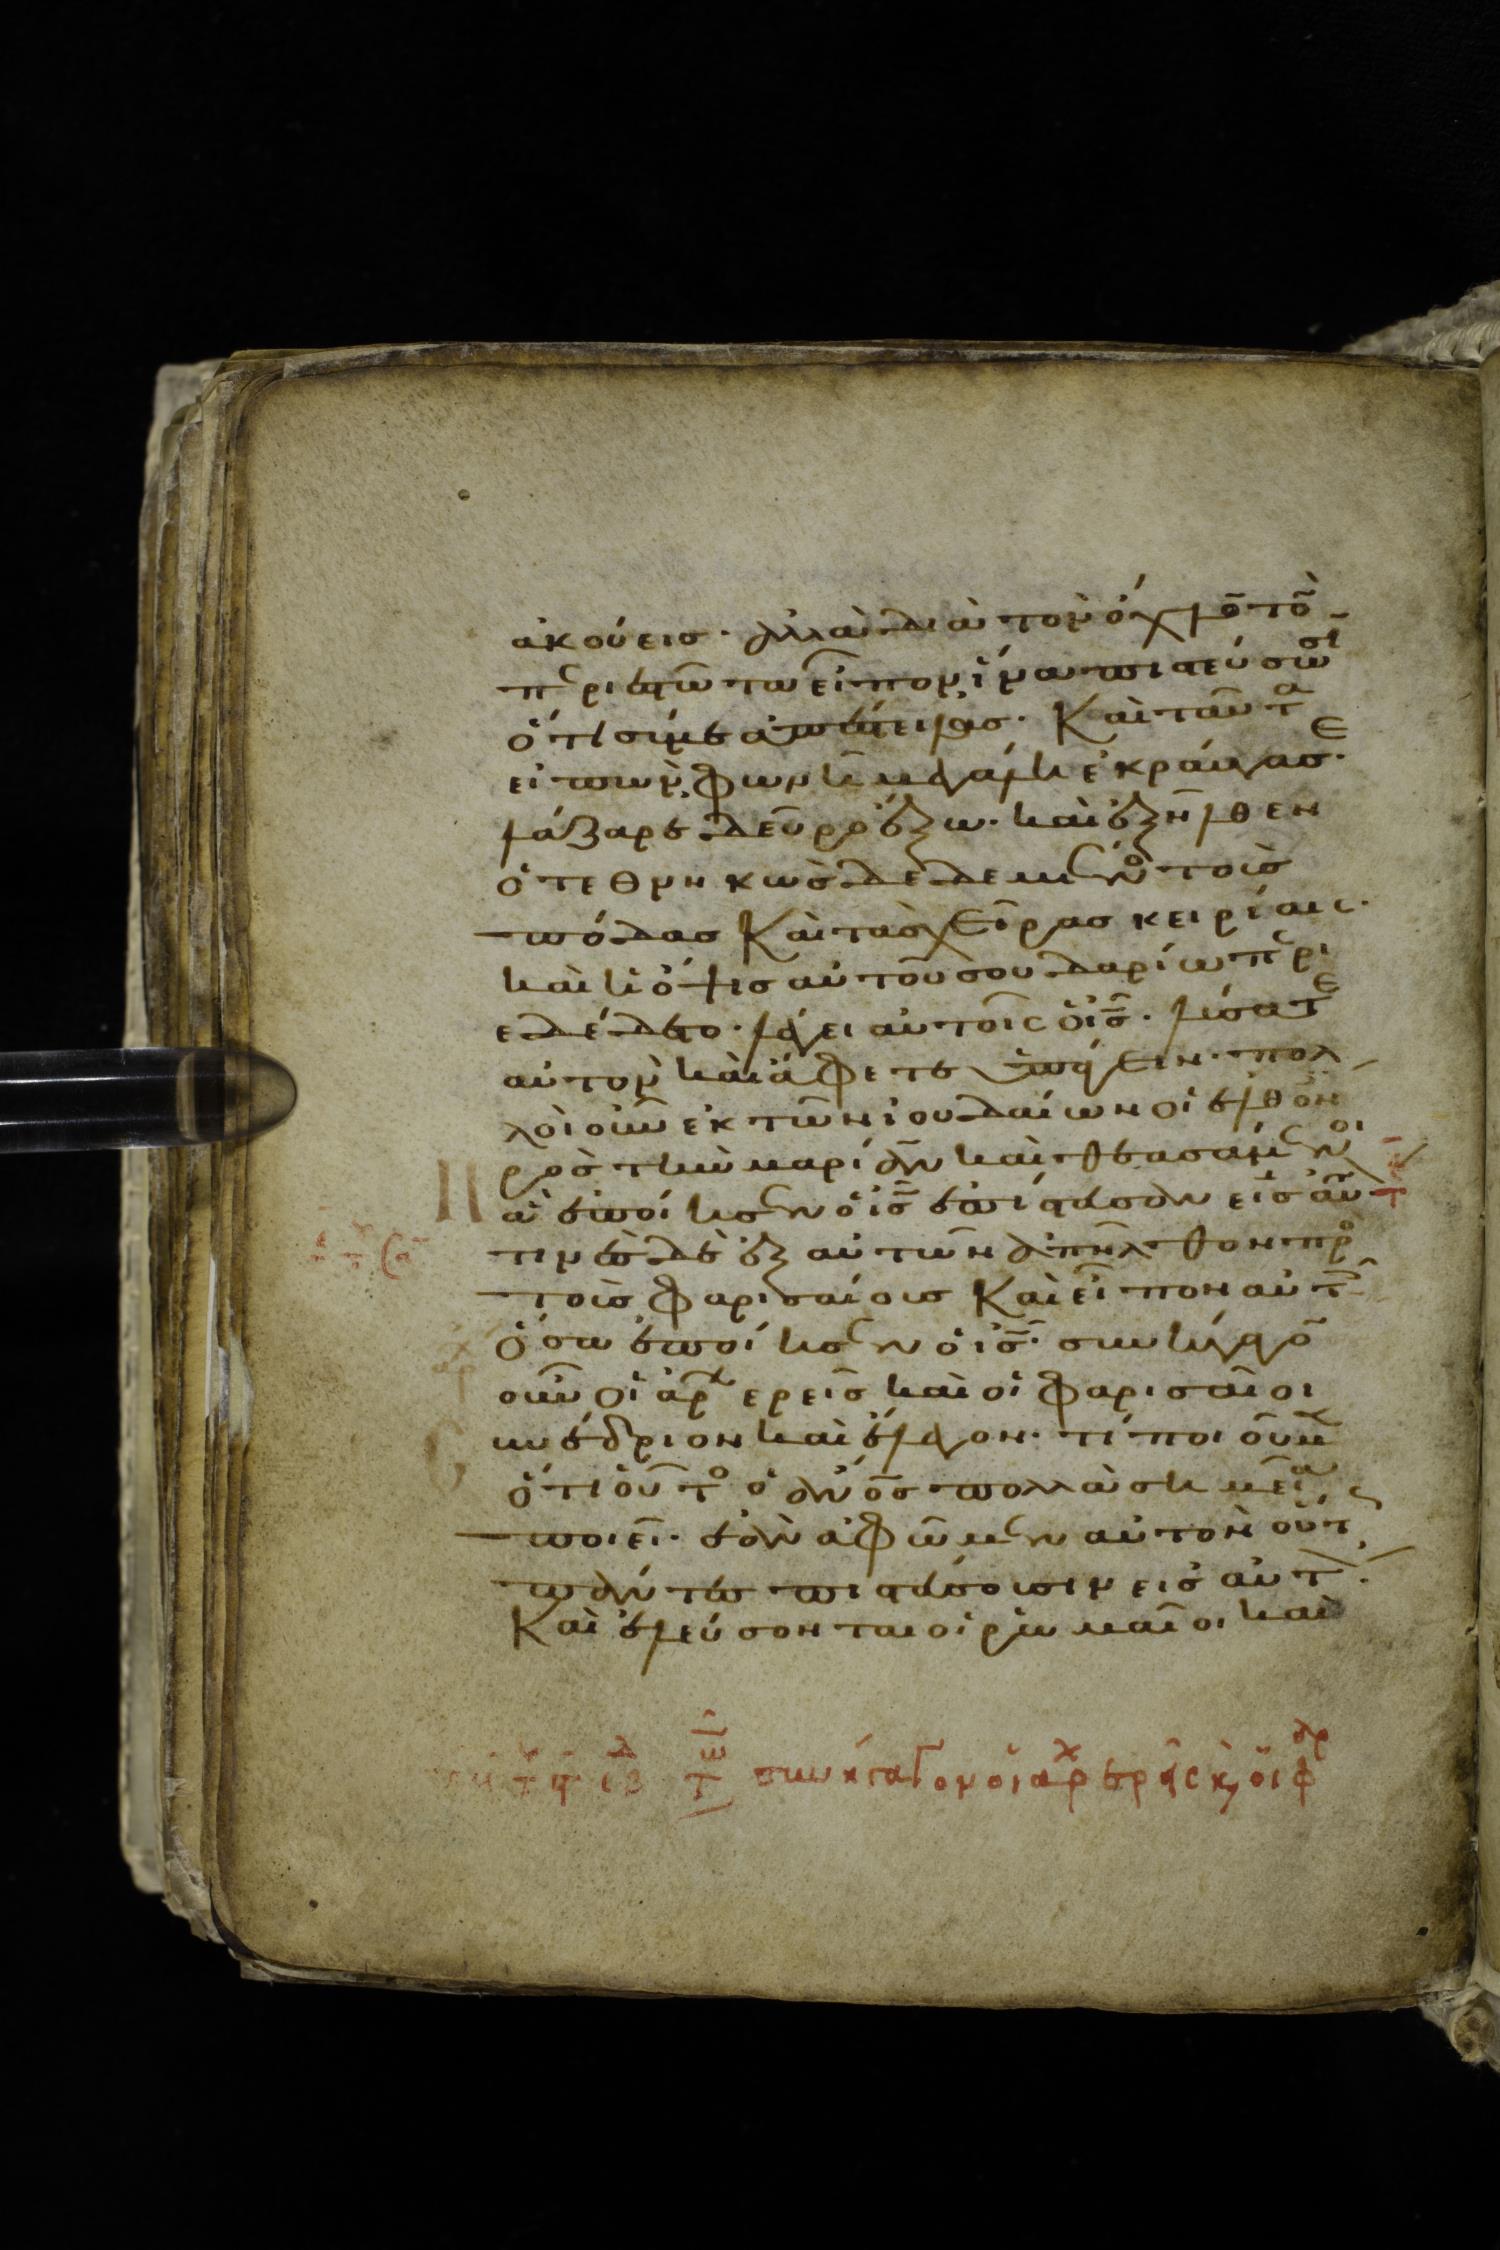 ἀκούεισ· ἀλλὰ διὰ τὸν ὄχλο̄ το̄
π̅ριεστῶτα εἶπον ἵνα πιστεύσωσῑ
ὅτι σύ με ἀπέστειλασ· Καὶ ταῦτα
εἰπὼν φωνῆ μεγάλη ἐκράυγασε·
λάζαρε δεῦρο ἔξω· καὶ ἐξῆλθεν
ὁ τεθνηκὼσ δεδεμένοσ τοὺσ
πόδασ Καὶ τὰσ χεῖρασ κειρίαισ·
καὶ ἡ ὄψισ αὐτοῦ σουδαρίω περι
εδέδετο· λέγει αὐτοῖς ὁ ι̅σ̅· λύσατε
αὐτὸν καὶ ἄφετε ὑπάγειν· πολ
λοὶ οὖν ἐκ τῶν ἰουδαίων οἱ ἐλθόν
ρὸσ τὴν μαρίαν καὶ θεασάμενοι
ἃ ἐποίησεν ὁ ι̅σ̅ ἐπίστευσαν εἰσ αὐτ
τινὲσ δὲ ἐξ αὐτῶν ἀπῆλθον πρὸ
τοὺσ φαρισαίουσ Καὶ εἶπον αὐτ
ὅσα ἐποίησεν ὁ ι̅σ̅· συνήγαγο̄
οὖν οἱ ἀρχερεῖσ καὶ οἱ φαρισαῖοι
υνέδριον καὶ ἔλεγον· τί ποιοῦμ
ὅτι οὗτοσ ὁ ἄν̅ο̅σ̅ πολλὰ σημεῖα
ποιεῖ· ἐὰν ἀφῶμεν αὐτὸν οὕτ
πάντεσ πιστεύσουσιν εἰσ αὐτ·
Καὶ ἐλεύσονται οἱ ρωμαῖοι καὶ
τελ συνήγαγον οἱ ἀρχερῆς κ οἱ φαρ